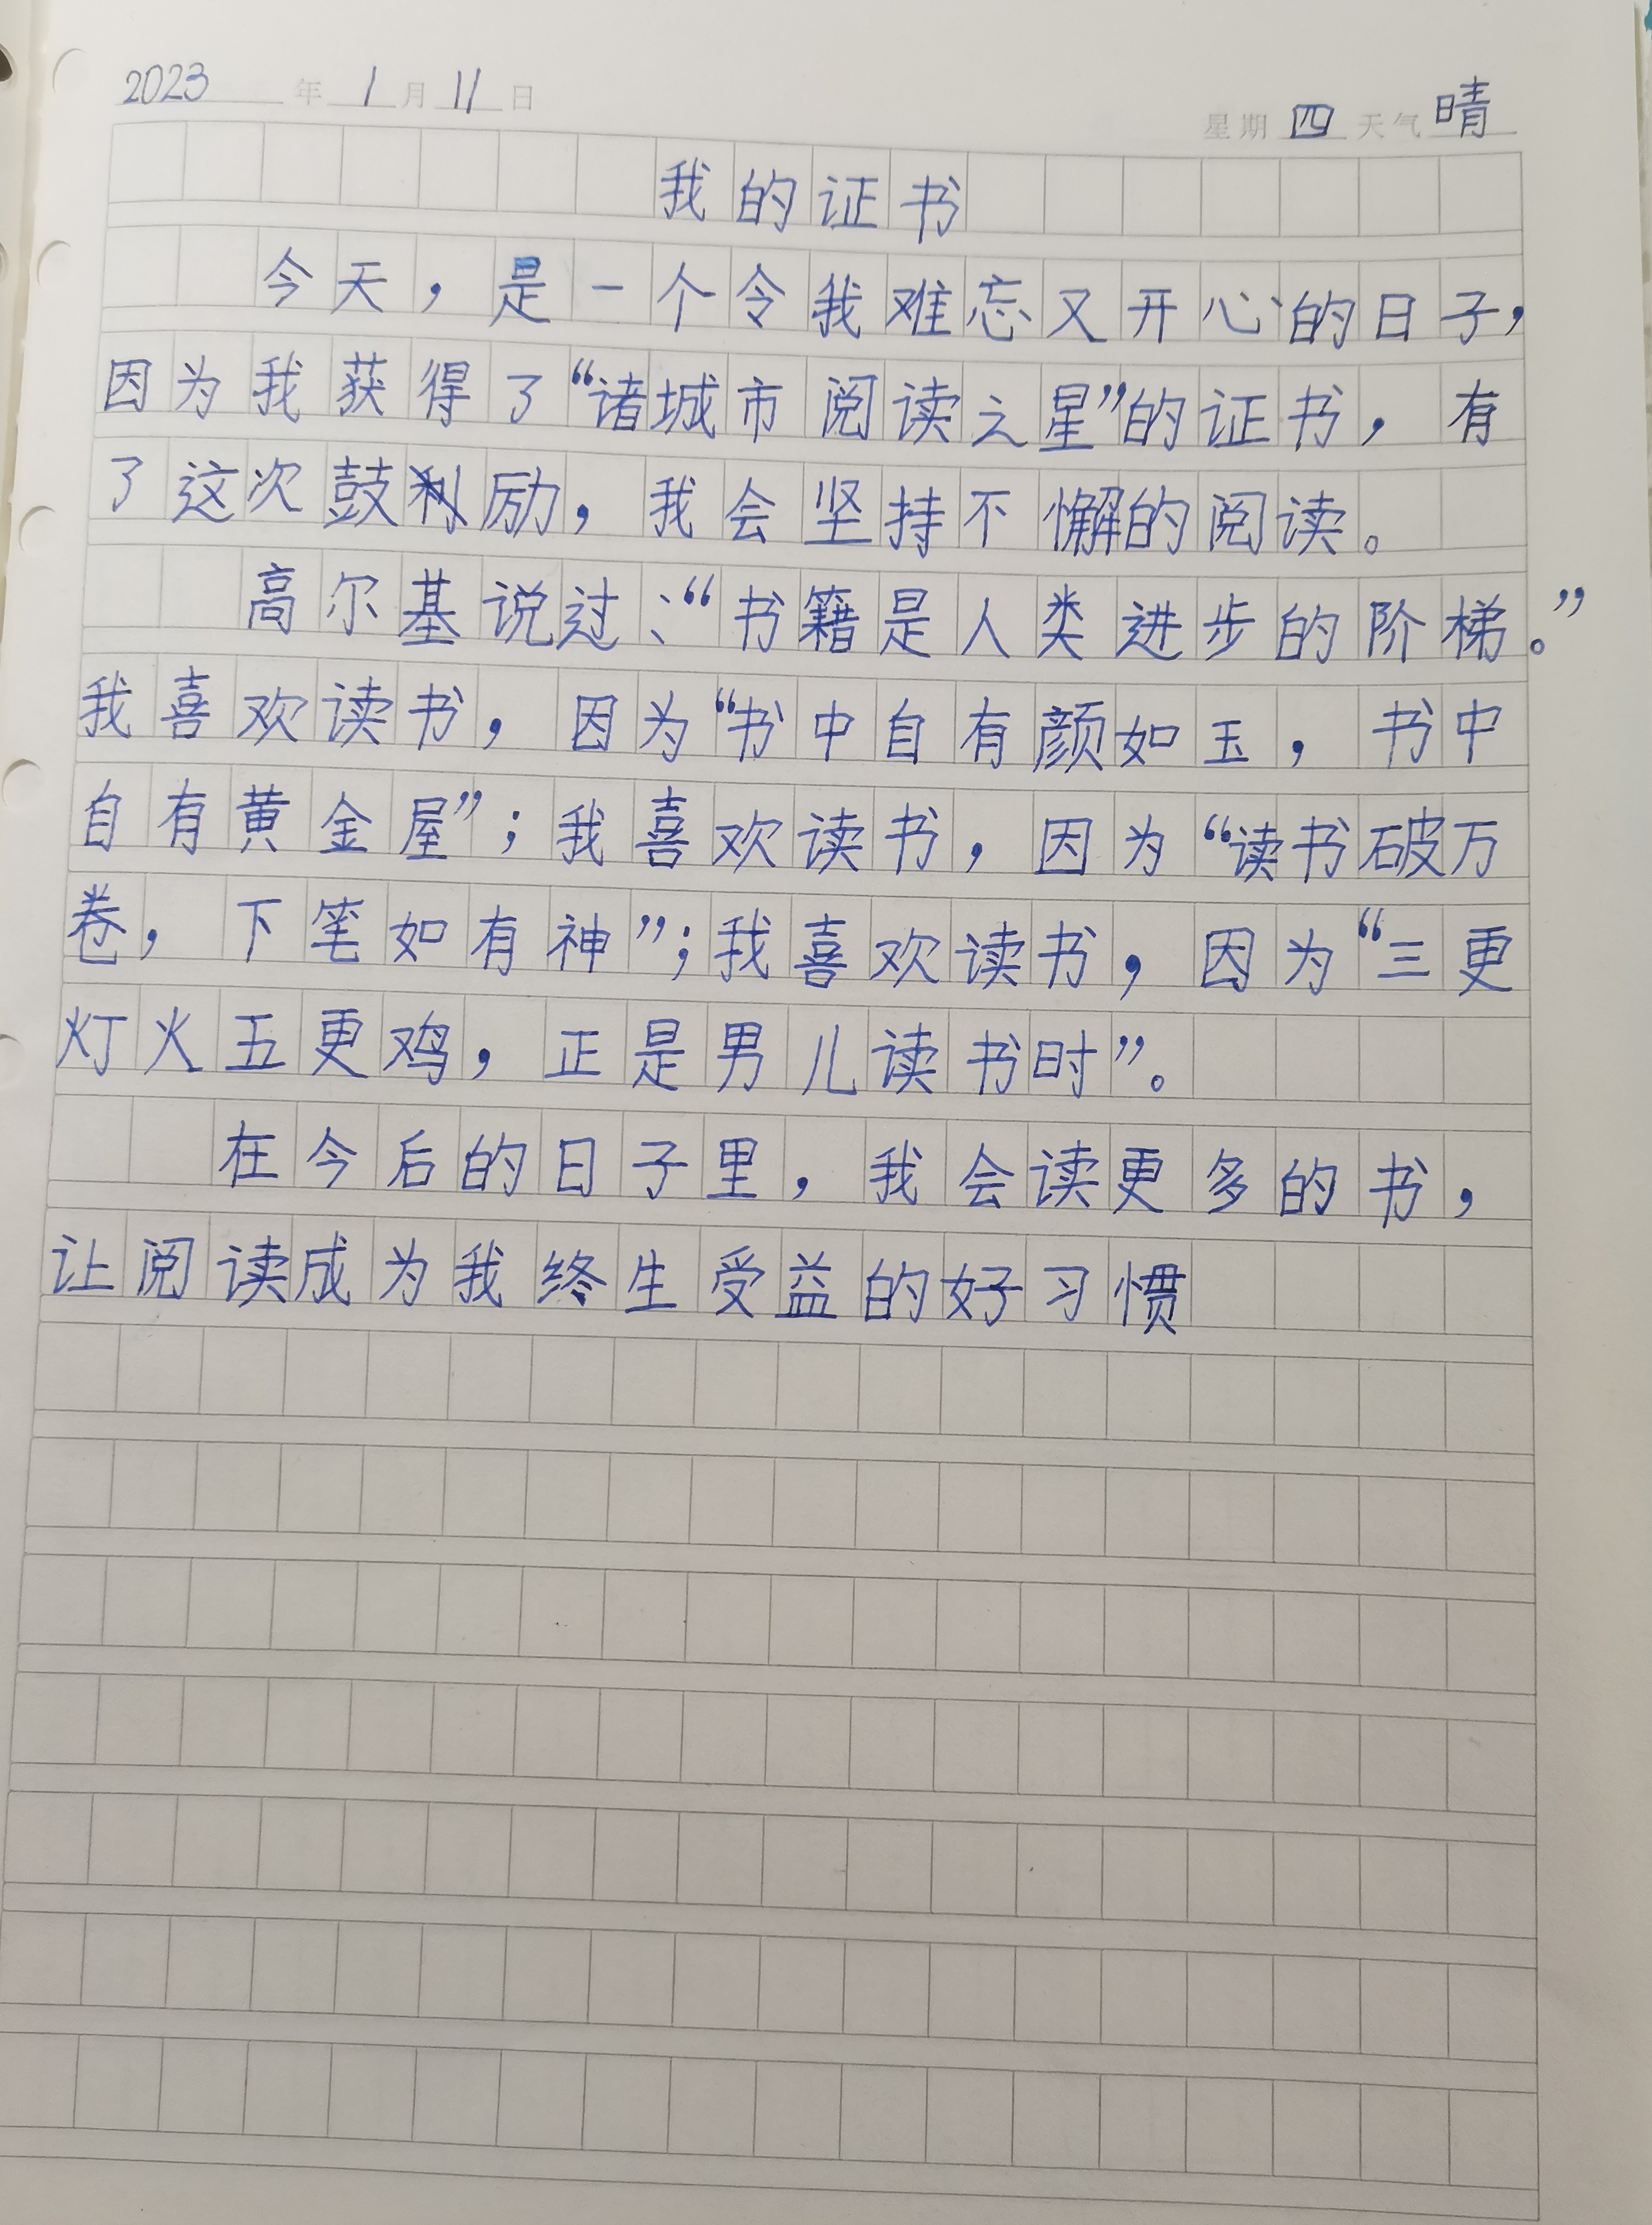 2023年1月11日 星期四天气晴
我的证书
今天，是一个令我难忘又开心的日子，
因为我获得了“诸城市阅读之星”的证书，有
了这次鼓励，我会坚持不懈的阅读。
高尔基说过、“书籍是人类进步的阶梯。”
我喜欢读书，因为“书中自有颜如玉，书中
自有黄金屋”；我喜欢读书，因为“读书破万
卷，下笔如有神”；我喜欢读书，因为“三更
灯火五更鸡，正是男儿读书时”。
在今后的日子里，我会读更多的书，
让阅读成为我终生受益的好习惯